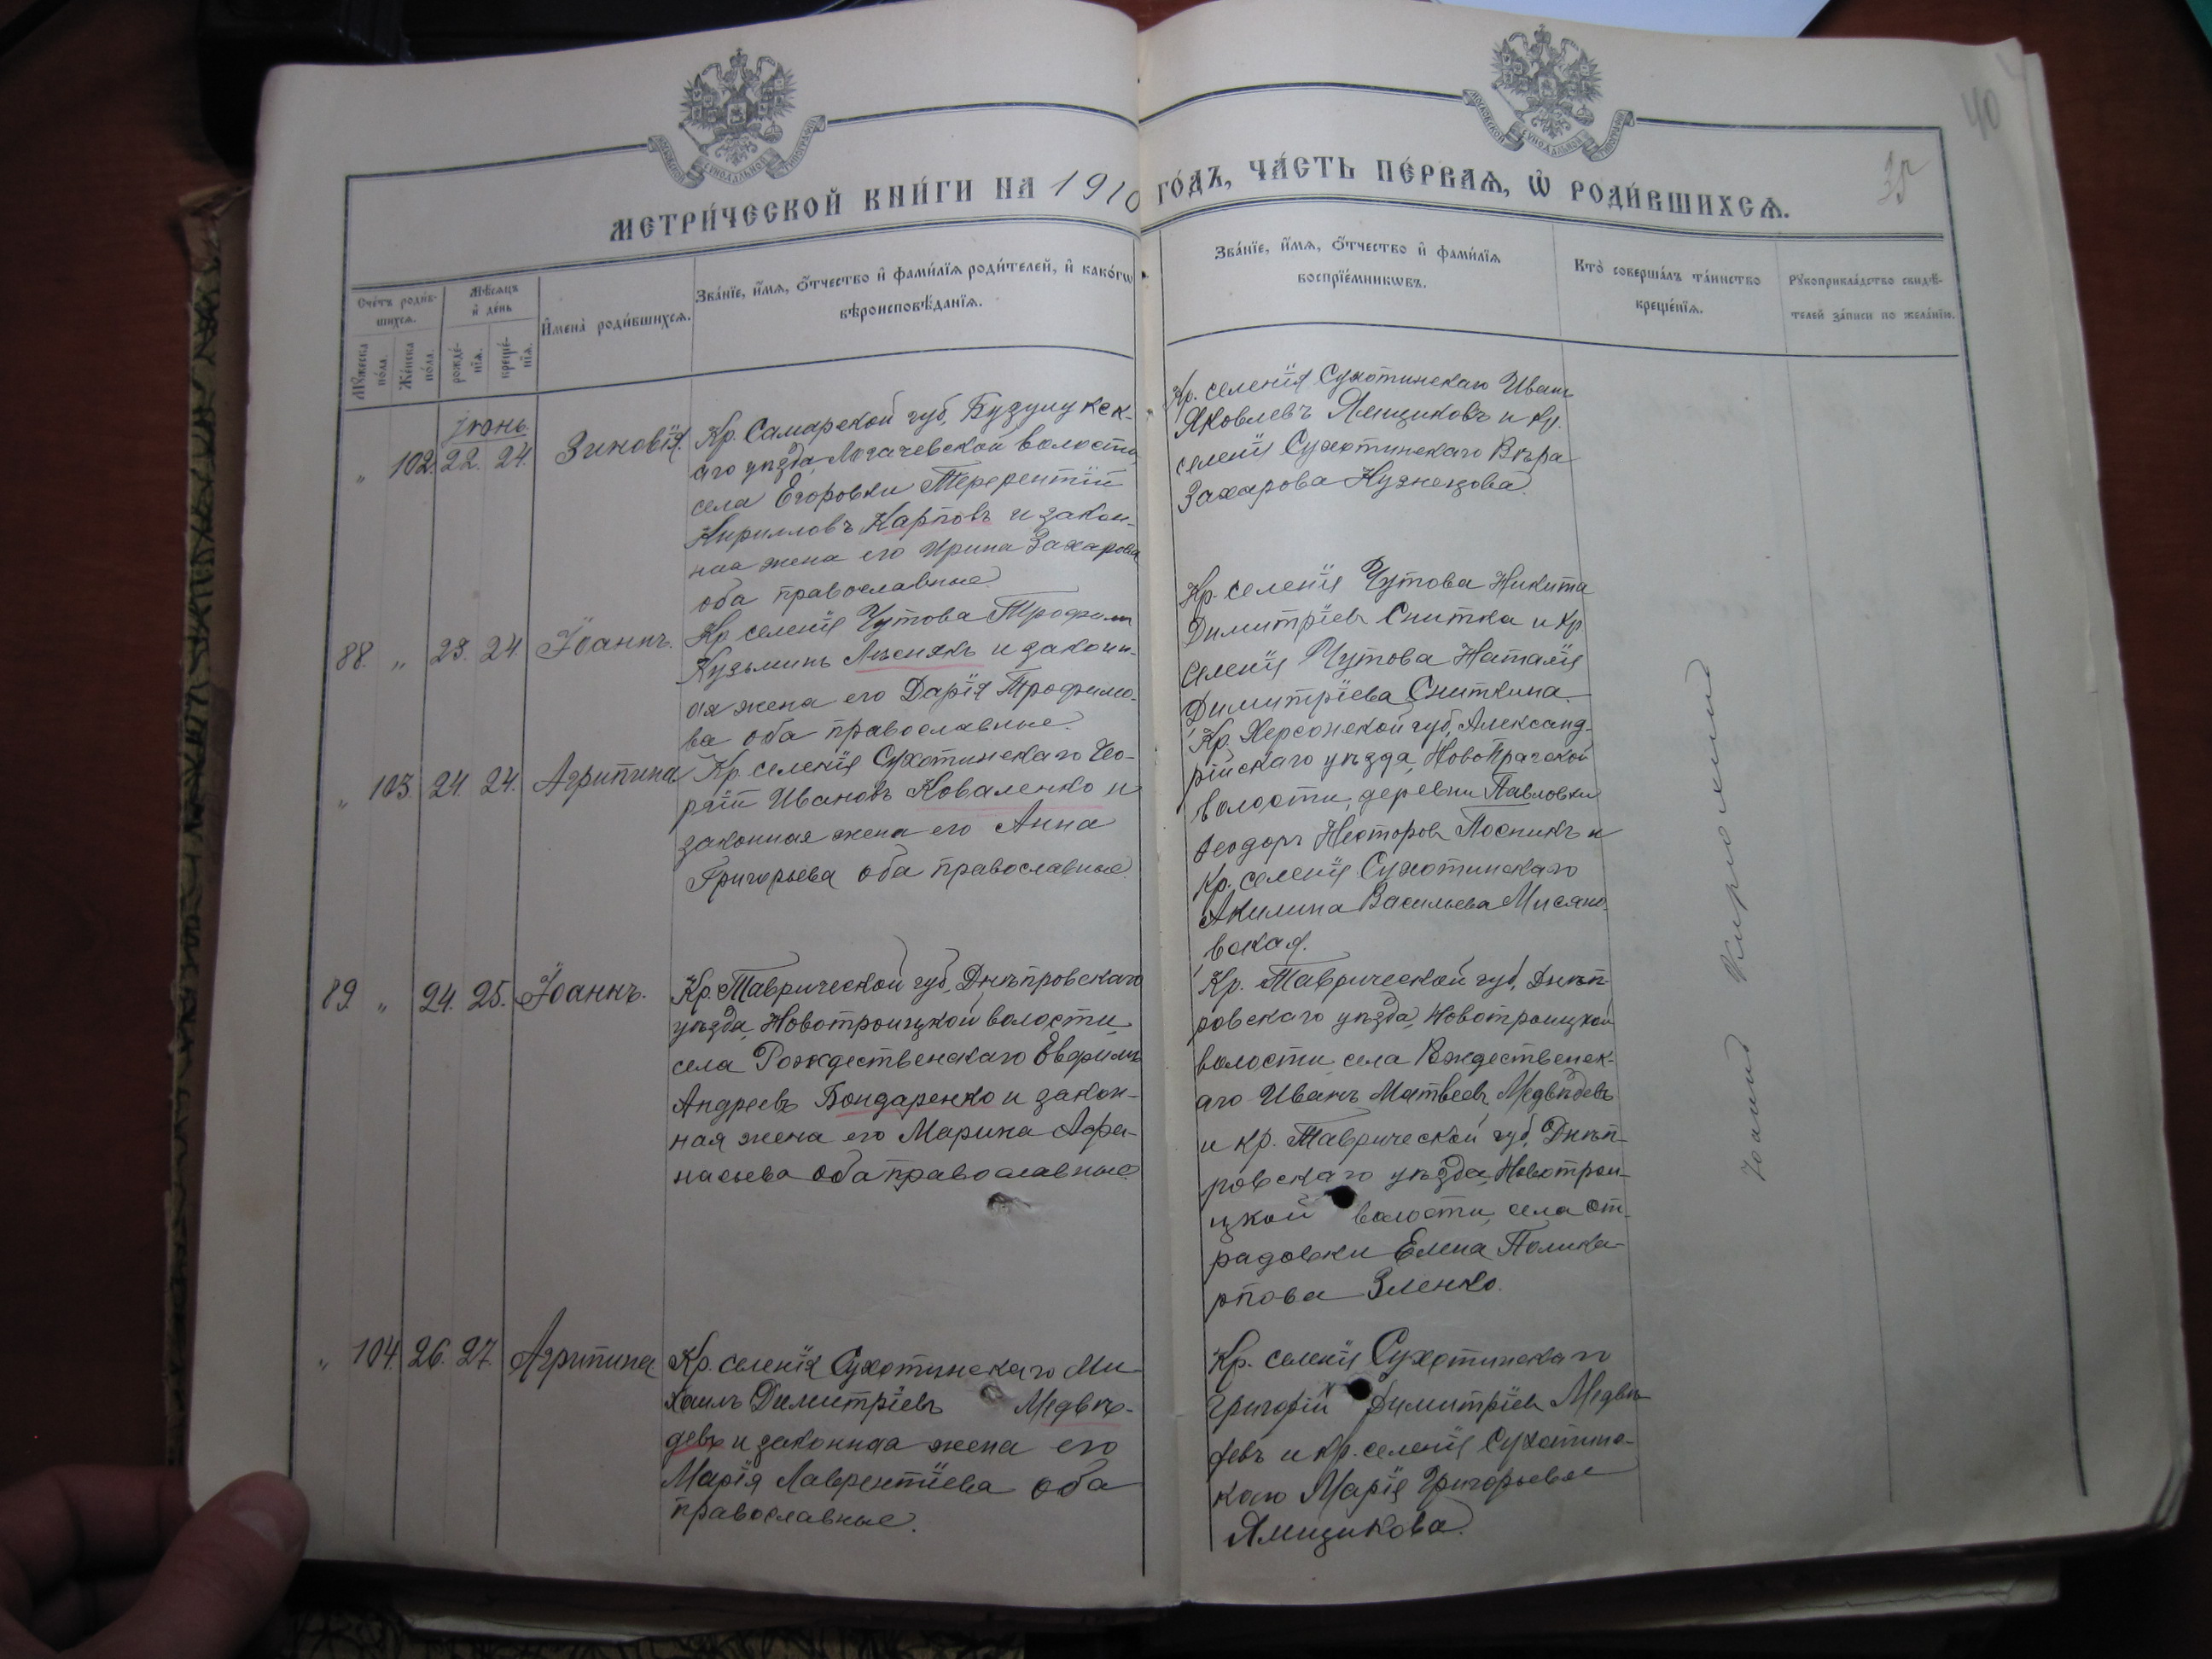 40
35
МОСКОВСКОЙ СѴНОДАЛЬНОЙ ТИПОГРАФІИ
МОСКОВСКОЙ СѴНОДАЛЬНОЙ ТИПОГРАФІИ
МЕТРИ́ЧЕСКОЙ КНИ́ГИ НА 1910 ГО́ДЪ, ЧА́СТЬ ПЕ́РВАѦ, Ѡ҆ РОДИ́ВШИХСѦ.
Сче́тъ роди́в-
шихсѧ.
Мꙋ́жеска
по́ла.
Же́нска
по́ла.
Мѣ́сѧцъ
и҆ де́нь
рожде́-
нїѧ.
креще́-
нїѧ.
И҆мена̀ роди́вшихсѧ.
Зва́нїе, и҆́мѧ, ѻ҆́тчество и҆ фами́лїѧ роди́телей, и҆ како́гѡ
вѣроисповѣ́данїѧ.
Зва́нїе, и҆́мѧ, ѻ҆́тчество и҆ фами́лїѧ
воспрїе́мникѡвъ.
Кто̀ соверша́лъ та́инство
креще́нїѧ.
Рꙋкоприкла́дство свидѣ́-
телей за́писи по жела́нїю.
іюнь
„ 102. 22. 24. Зиновія.
Кр. Самарской губ, Бузулукск-
аго уѣзда, Логачевской волости,
села Егоровки Терентій
Кирилловъ Карповъ и закон-
ная жена его Ирина Захарова
оба православные.
Кр. селенія Сухотинскаго Иванъ
Яковлевъ Ямщиковъ и кр.
селенія Сухотинскаго Вѣра
Захарова Кузнецова.
88. „ 23. 24. Іоаннъ.
Кр селенія Чутова Трофим
Кузьминъ Лѣснякъ и законн-
ая жена его Дарія Трофимо-
ва оба православные.
Кр. селенія Чутова Никита
Димитріевъ Снитка и кр
селенія Чутова Наталія
Димитріева Сниткина.
„ 103. 24. 24. Агрипина
Кр. селенія Сухотинскаго Гео-
ргій Ивановъ Коваленко и
законная жена его Анна
Григорьева оба православные.
Кр. Херсонской губ, Александ-
рійскаго уѣзда, Новопрагской
волости, деревни Павловки
Ѳеодоръ Несторовъ Посникъ и
кр. селенія Сухотинскаго
Акилина Васильева Мисяно-
вская.
89 „ 24. 25. Іоаннъ.
Кр. Таврической губ, Днѣпровскаго
уѣзда, Новотроицкой волости,
села Рождественскаго Евфимъ
Андреевъ Бондаренко и закон-
ная жена его Марина Афа-
насьева оба православные.
Кр. Таврической губ, Днѣп-
ровскаго уѣзда, Новотроицкой
волости села Рждественск-
аго Иванъ Матвѣевъ Медвѣдевъ
и кр. Таврической губ, Днѣп-
ровскаго уѣзда, Новотрои-
цкой волости, села От-
радовки Елена Полика-
рпова Зленко.
„ 104. 26. 27. Агрипина
Кр. селенія Сухотинскаго Ми-
хаилъ Димитріевъ Медвѣ-
девъ и законная жена его
Марія Лаврентіева оба
православные.
Кр. селенія Сухотинскаго
Григорій Димитріевъ Медвѣ-
девъ и кр. селенія Сухотинс-
каго Марія Григорьева
Ямщикова.